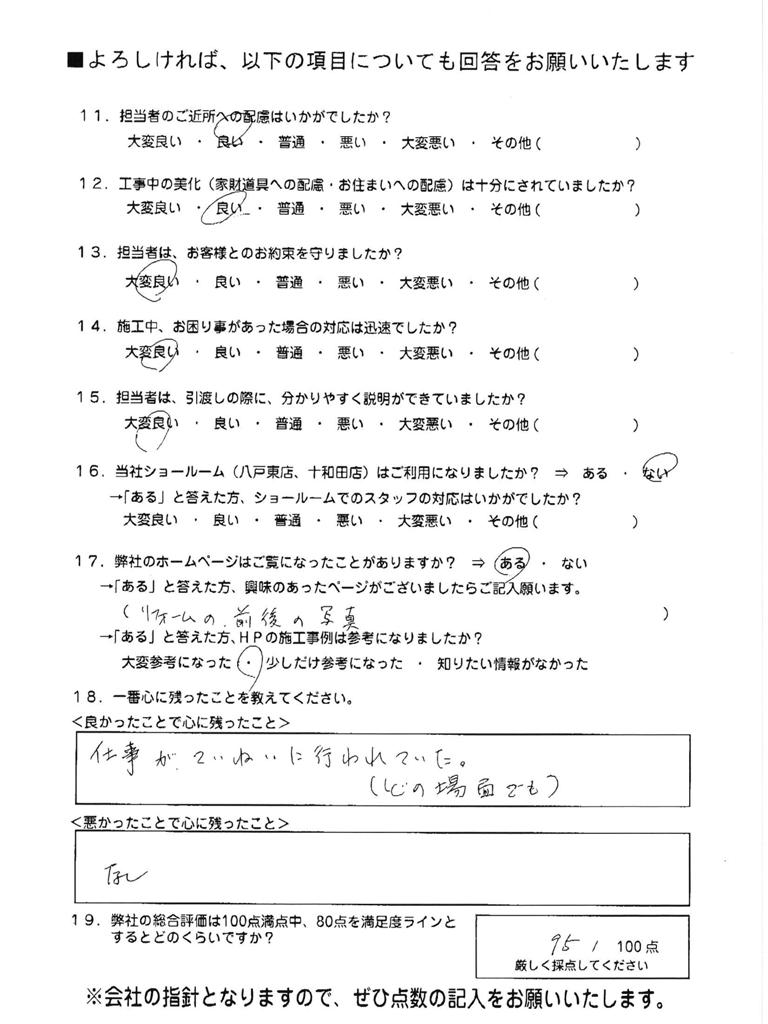 ■よろしければ、以下の項目についても回答をお願いいたします
11．担当者のご近所への配慮はいかがでしたか？
大変良い ・ 良い ・ 普通 ・ 悪い ・ 大変悪い ・ その他（　　　　　）
12．工事中の美化（家財道具への配慮・お住まいへの配慮）は十分にされていましたか？
大変良い ・ 良い ・ 普通 ・ 悪い ・ 大変悪い ・ その他（　　　　　）
13．担当者は、お客様とのお約束を守りましたか？
大変良い ・ 良い ・ 普通 ・ 悪い ・ 大変悪い ・ その他（　　　　　）
14．施工中、お困り事があった場合の対応は迅速でしたか？
大変良い ・ 良い ・ 普通 ・ 悪い ・ 大変悪い ・ その他（　　　　　）
15．担当者は、引渡しの際に、分かりやすく説明ができていましたか？
大変良い ・ 良い ・ 普通 ・ 悪い ・ 大変悪い ・ その他（　　　　　）
16．当社ショールーム（八戸東店、十和田店）はご利用になりましたか？ ⇒ ある ・ ない
→「ある」と答えた方、ショールームでのスタッフの対応はいかがでしたか？
大変良い ・ 良い ・ 普通 ・ 悪い ・ 大変悪い ・ その他（　　　　　）
17．弊社のホームページはご覧になったことがありますか？ ⇒ ある ・ ない
→「ある」と答えた方、興味のあったページがございましたらご記入願います。
（リフォームの前後の写真　　　　　）
→「ある」と答えた方、HPの施工事例は参考になりましたか？
大変参考になった ・ 少しだけ参考になった ・ 知りたい情報がなかった
18．一番心に残ったことを教えてください。
＜良かったことで心に残ったこと＞
仕事が、ていねいに行われていた。
（どの場面でも）
＜悪かったことで心に残ったこと＞
なし
19．弊社の総合評価は100点満点中、80点を満足度ラインと
するとどのくらいですか？
95 / 100点
厳しく採点してください
※会社の指針となりますので、ぜひ点数の記入をお願いいたします。